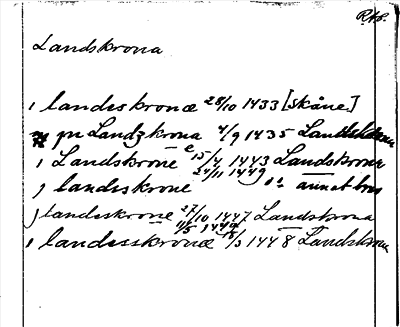 RAP.
Landskrona
i landeskronæ 28/10 1433 [Skåne]
pn Landzkrona 4/9 1435 Landskrona
i Landskrone 15/4 1443 Landskrona
j landeskrone 24/11 1449 annat brev
j landeskrone 27/10 1447 Landskrona
11/5 1449
i landesskronæ 18/3 1448 Landskrona